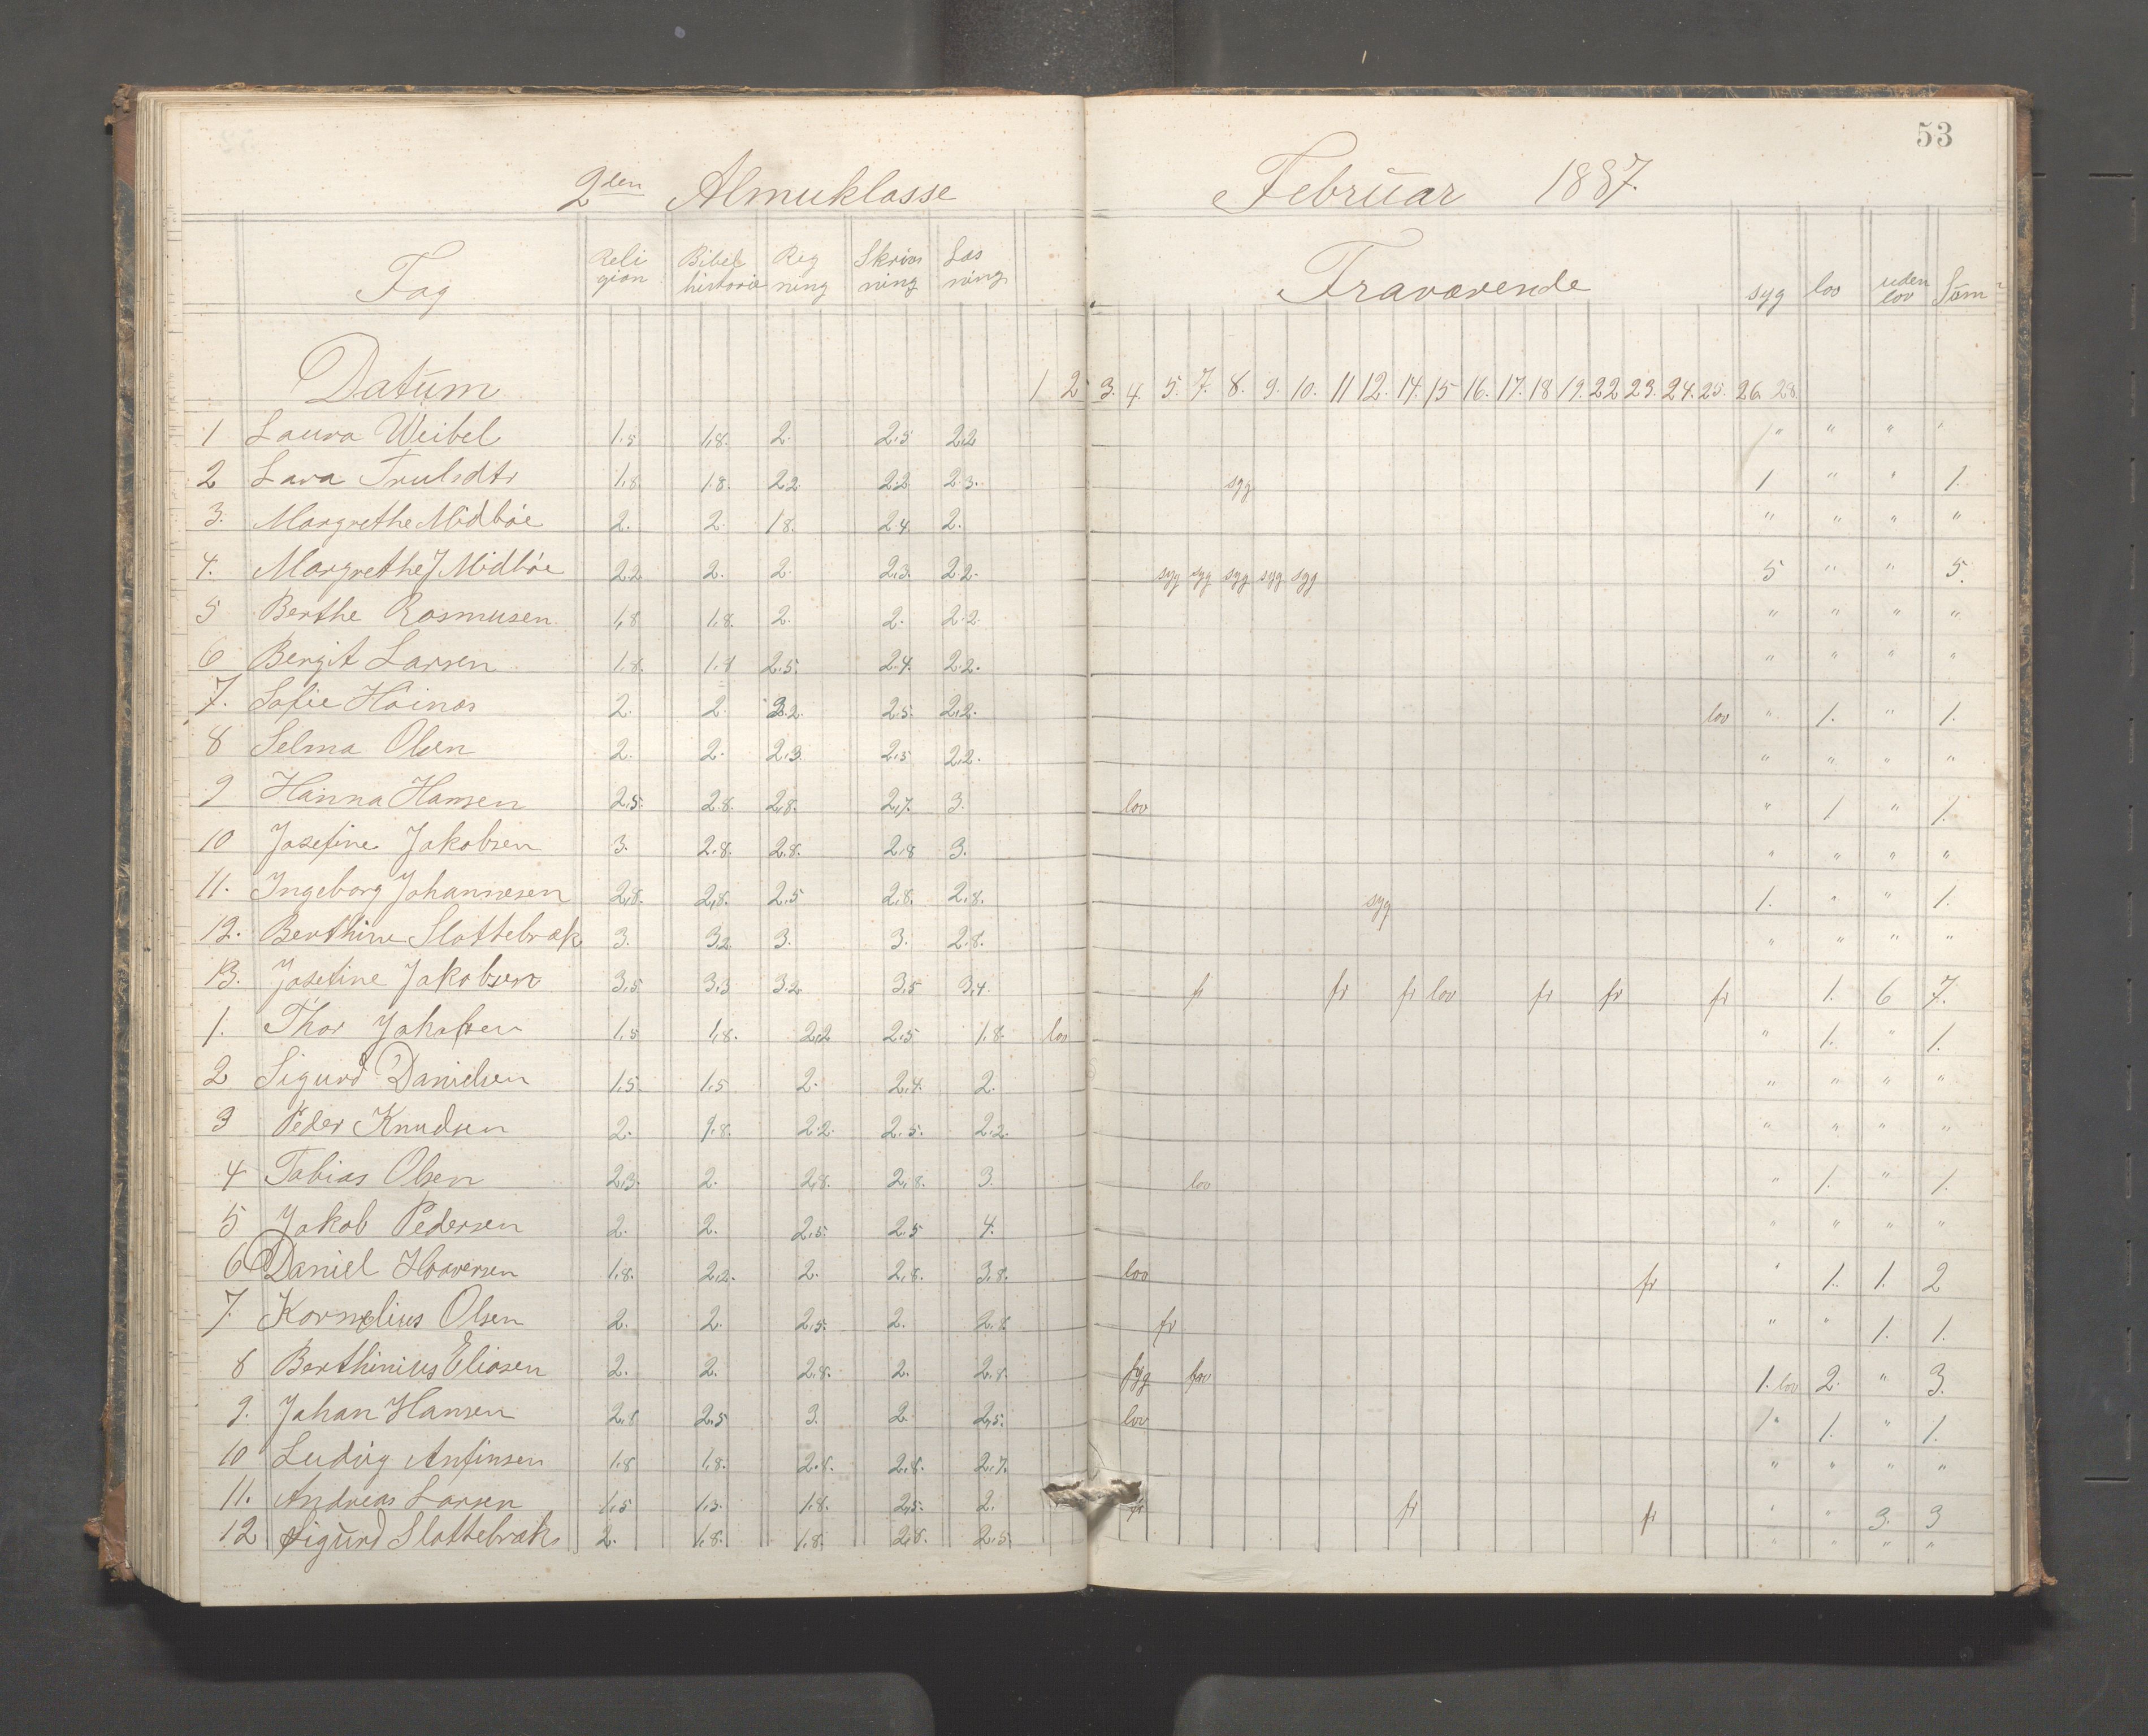 53
2den Almuklasse Februar 1887.
Fag Reli gion Bibel historie Reg ning Skriv ning Læs ning Fraværende syg lov uden lov Sum
Datum 1 2 3. 4. 5. 7. 8. 9. 10. 11 12. 14. 15 16. 17. 18 19. 22 23. 24. 25. 26. 28.
1 Laura Weibel 1.5 1,8. 2. 2.5 2,2 " " " "
2 Lava Trulsdtr 1,8 1.8. 2.2. 2.2. 2.3. syg 1 " " 1.
3. Margrethe Midbøe 2. 2. 1.8. 2.4. 2. " " " "
4. Margrethe J Midbøe 2.2 2. 2. 2,3. 2.2. syg syg syg syg syg 5 " " 5.
5 Berthe Rasmusen 1,8 1.8. 2. 2. 2.2. " " " "
6 Bergit Larsen 1.8. 1.8 2.5. 2.4. 2.2. " " " "
7. Sofie Höinæs 2. 2. 3.2. 2.5. 2,2. lov " 1. " 1.
8 Selma Olsen 2. 2. 2,3. 2,5 2,2. " " " "
9 Hanna Hansen 2,5. 2.8. 2,8. 2,7. 3. lov " 1 " 1.
10 Josefine Jakobsen 3. 2.8. 2.8. 2.8 3. " " " "
11. Ingeborg Johannesen 2,8. 2,8. 2,5 2,8. 2,8. syg 1. " " 1.
12. Berthine Slottebræk 3. 3.2. 3. 3. 2.8. " " " "
13. Josefine Jakobsen 3,5 3,3 3.2 3,5 3,4. fr fr fr lov fr fr fr 1. 6 7.
1. Thor Jakobsen 1,5 1,8. 2,2 2.5 1.8. lov " 1. " 1.
2 Sigurd Danielsen 1,5. 1.5 2. 2,4. 2. " " " "
3 Peder Knudsen 2. 1.8. 2.2. 2.5. 2.2. " " " "
4 Tobias Olsen 2,3. 2. 2,8. 2,8. 3. lov " 1. " 1.
5 Jakob Pedersen 2. 2. 2,5. 2.5 4. " " " "
6 Daniel Haaversen 1.8. 2.2. 2. 2,8. 3,8. lov fr " 1. 1. 2
7. Kornelius Olsen 2. 2. 2,5. 2. 2.8 fr " " 1. 1.
8 Berthinius Eliasen 2. 2. 2,8. 2. 2.8. syg 1. lov 2. " 3.
9. Johan Hansen 2,8 2,5 3. 2. 2,5. lov " 1. " 1.
10 Ludvig Anfinsen 1,8 1,8. 2.8. 2,8. 2,7. " " " "
11. Andreas Larsen 1,5 1,5. 1.8. 2,5. 2. fr fr fr " " 3. 3
12 Sigurd Slottebræk 2. 1.8. 1.8. 2,8. 2.5. " " " "